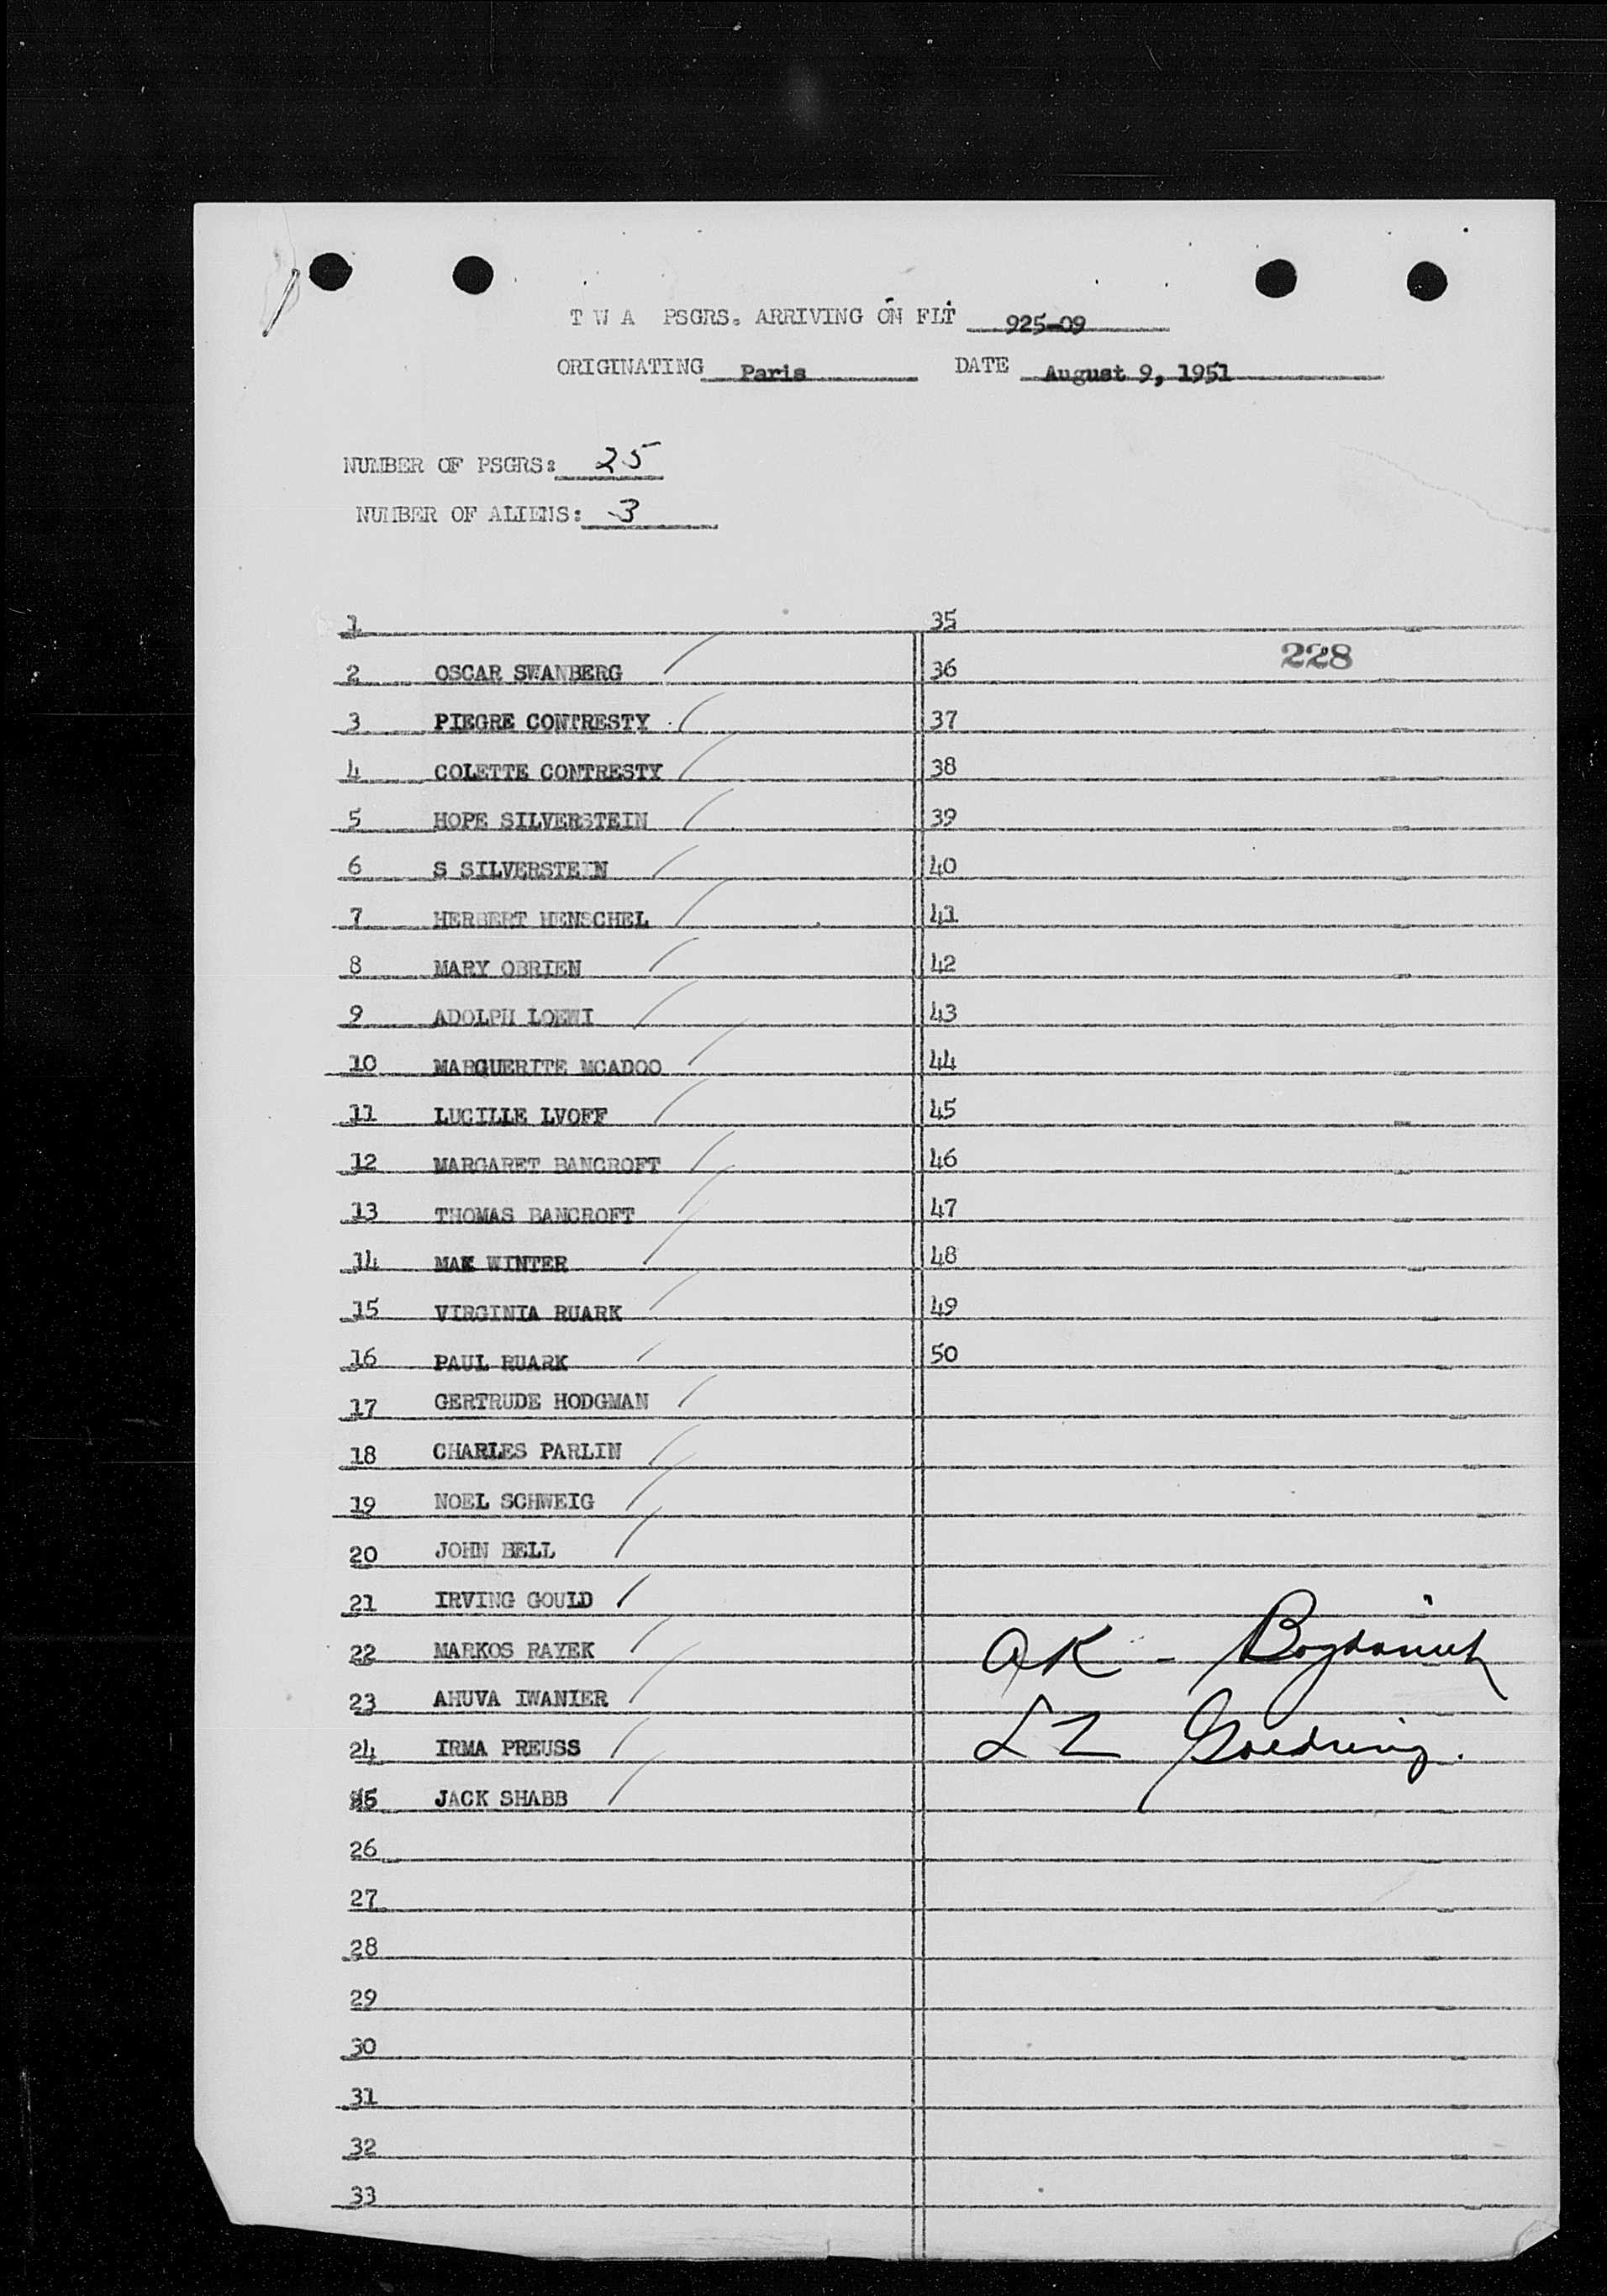 T W A PSGRS. ARRIVING ON FLT 925-09
ORIGINATING Paris DATE August 9, 1951
NUMBER OF PSGRS: 25
NUMBER OF ALIENS: 3
1
2 OSCAR SWANBERG
3 PIEGRE CONTRESTY
4 COLETTE CONTRESTY
5 HOPE SILVERSTEIN
6 S SILVERSTEIN
7 HERBERT HENSCHEL
8 MARY OBRIEN
9 ADOLPH LOEWI
10 MARGUERITE MCADOO
11 LUCILLE LVOFF
12 MARGARET BANCROFT
13 THOMAS BANCROFT
14 MAX WINTER
15 VIRGINIA RUARK
16 PAUL RUARK
17 GERTRUDE HODGMAN
18 CHARLES PARLIN
19 NOEL SCHWEIG
20 JOHN BELL
21 IRVING GOULD
22 MARKOS RAYEK
23 AHUVA IWANIER
24 IRMA PREUSS
25 JACK SHABB
26
27
28
29
30
31
32
33
35
228
36
37
38
39
40
41
42
43
44
45
46
47
48
49
50
OK -